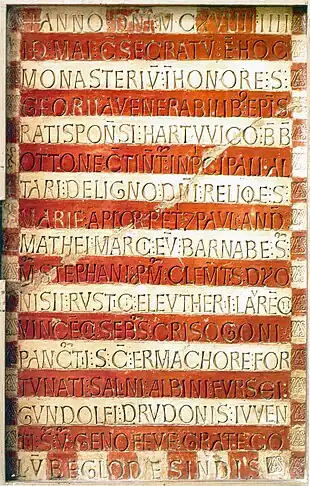 + ANNO : DNI : M C XVIIII : IIII
ID MAI : CSECRATV : E HOC
MONASTERIV : I HONORE : S :
GEORII A VENERABILIB EPIS
RATISPONSI : HARTVVICO : B B
OTTONE CTINET : IN PCIPALI AL
TARI : DE LIGNO DNI : RELIQE S
MARIE : APLOR PET PAVL AND
MATHEI : MARC EV BARNABE S
M STEPHANI P M CLEMTIS DYO
NISI : RVST C ELEVTHERI LARE
VINCE SEB S CRISOGONI
PANCTI : S C ERMACHORE FOR
TVNATI SALNI ALBINI FVRSEI
GVNDOLFI DRVDONIS : IVVEN
TI S V GENOFEVE GRATE CO
LVBE GLODESINDIS